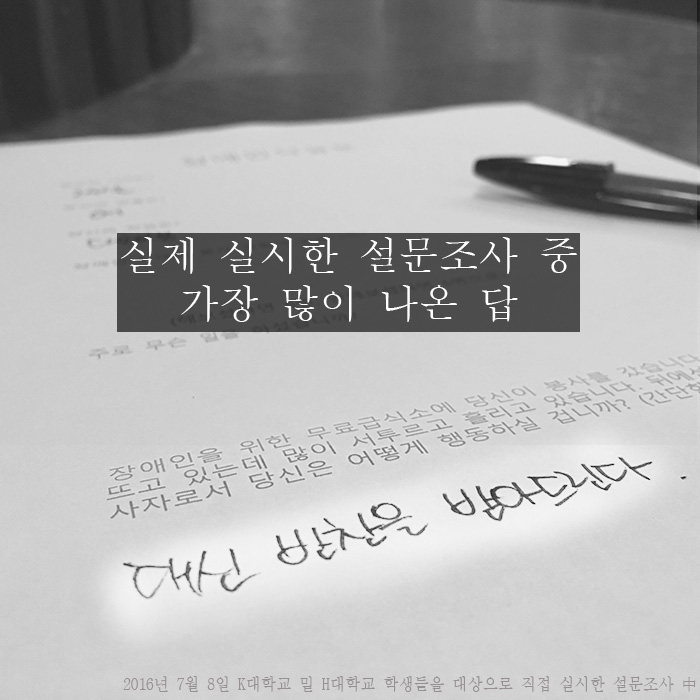 실제 실시한 설문조사 중
가장 많이 나온 답
주로 무슨 일을
장애인을 위한 무료급식소에 당신이 봉사를 갔습니다
뜨고 있는데 많이 서투르고 흘리고 있습니다. 뒤에서
사자로서 당신은 어떻게 행동하실 겁니까? (간단히
대신 반찬을 받아드린다.
2016년 7월 8일 K대학교 및 H대학교 학생들을 대상으로 직접 실시한 설문조사 中